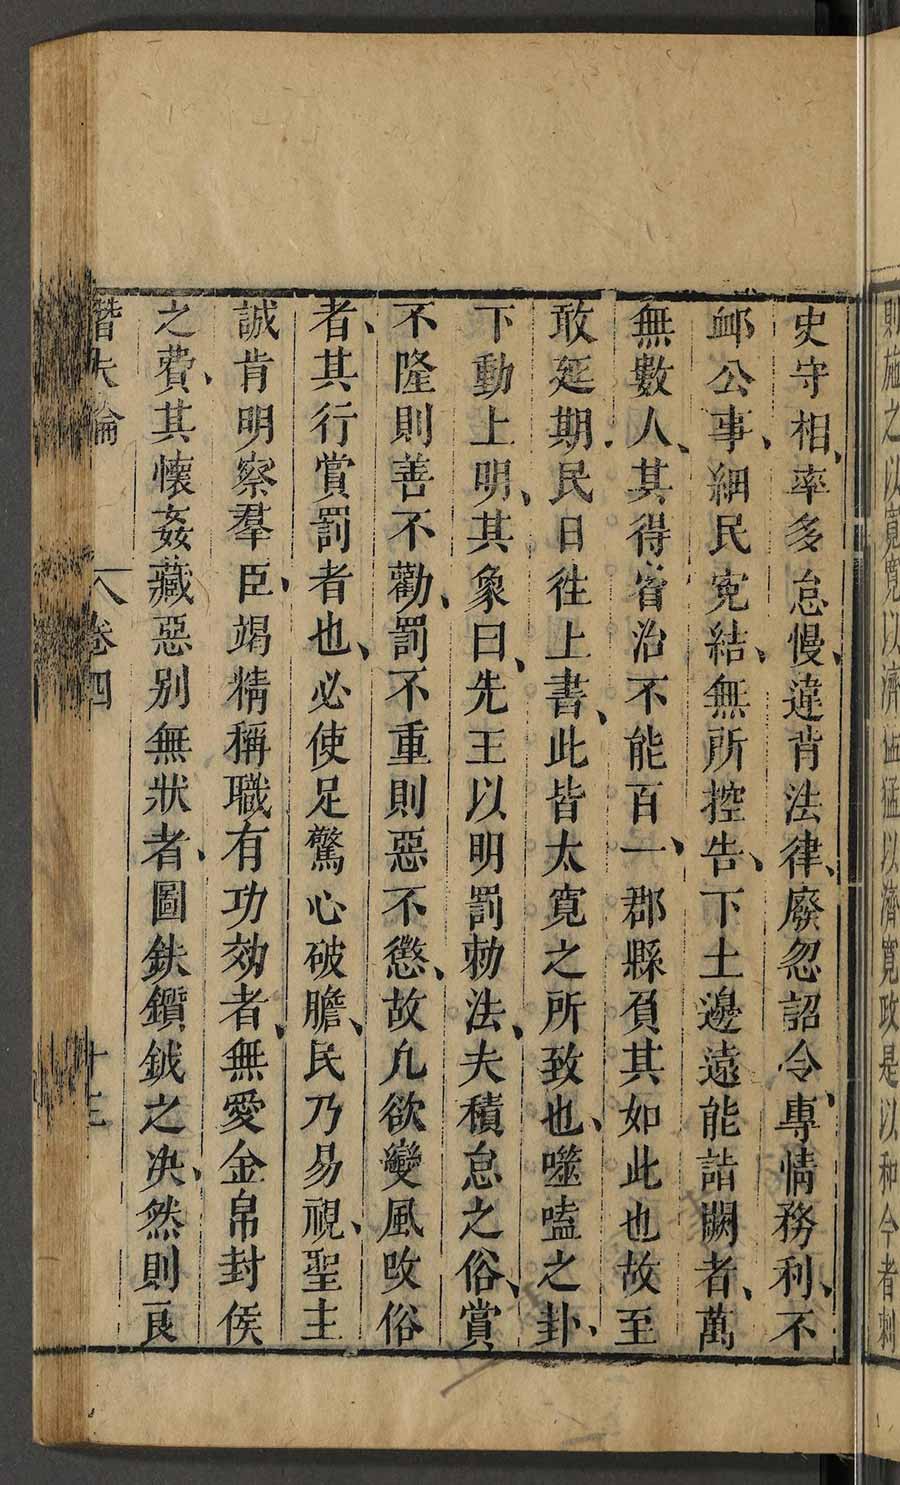 則施之以寬寬以濟猛猛以濟寬政是以和今者刺
史守相、率多怠慢、違背法律、廢忽詔令、專情務利、不
䘏公事、細民寃結、無所控告、下土邊遠能詣闕者、萬
無數人、其得省治不能百一、郡縣負其如此也故至
敢延期民日徃上書、此皆太寬之所致也、噬嗑之卦、
下動上明、其象曰、先王以明罰勅法、夫積怠之俗、賞
不隆則善不勸、罰不重則惡不懲、故凡欲變風改俗
者、其行賞罰者也、必使足驚心破膽、民乃易視、聖主
誠肯明察羣臣、竭精稱職有功效者、無愛金帛封侯
之費、其懷姦藏惡别無狀者、圖鈇鑕鉞之决、然則良
潛夫論 卷四 十三